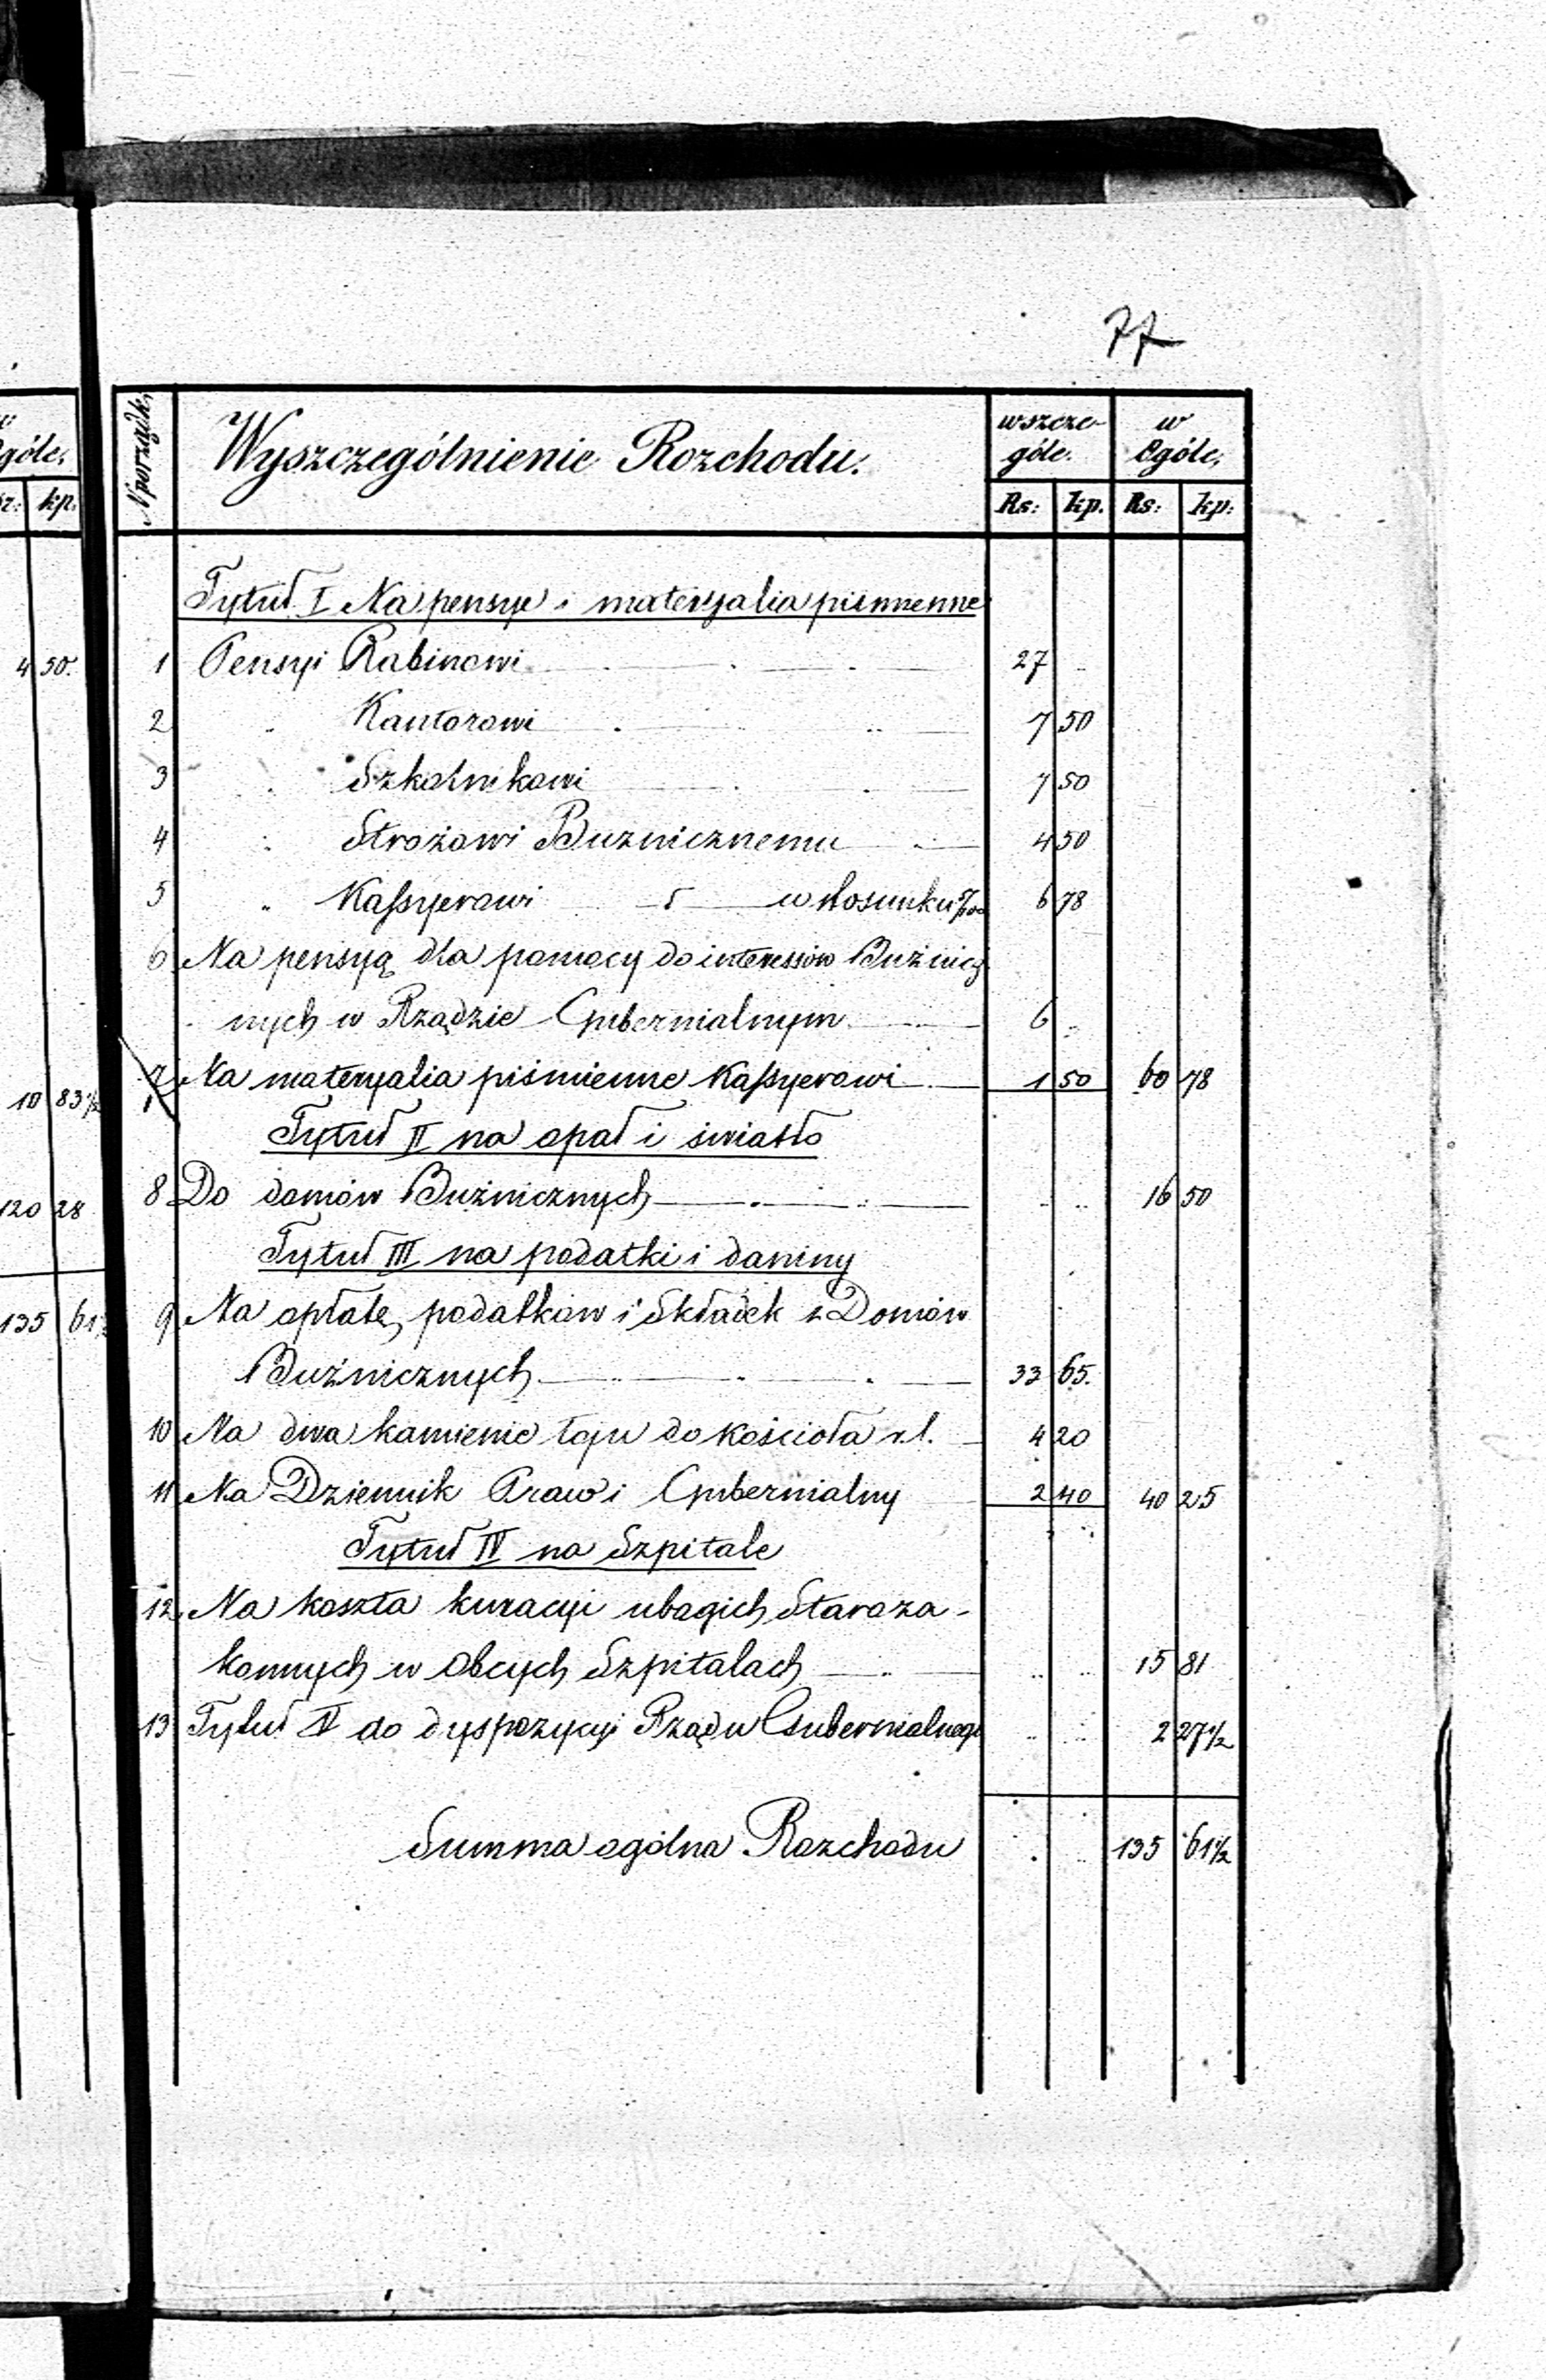 77
w
Ogóle.
kp.
N porządk.
Wyszczególnienie Rozchodu.
wszcze-
góle.
w
Ogóle.
Rs: kp. Rs: kp:
Tytuł I Na pensye i materyalia piśmienne
4 50.
1 Pensyi Rabinowi 27 "
2 " Kantorowi 7 50
3 " Szkolnikowi 7 50
4 " Stróżowi Buznicznemu 4 50
5 " Kassyerowi w stosunku 5/100 6 78
6 Na pensyą dla pomocy do interessów Bużnicz
nych w Rządzie Gubernialnym 6 "
7 Na materyalia piśmienne Kassyerowi 1 50 60 78
10 83 1/2
Tytuł II na opał i światło
8 Do domów Bużnicznych " " 16 50
120 28
Tytuł III na podatki i daniny
9 Na opłatę podatków i Składek z Domów
135 61 1/2
Bużnicznych 33 65.
10 Na dwa kamienie łoju do Kościoła r.l. 4 20
11 Na Dziennik Praw i Gubernialny 2 40 40 25
Tytuł IV na Szpitale
12. Na koszta kuracyi ubogich Staroza-
konnych w obcych Szpitalach " " 15 81
13 Tytuł V do dyspozycyi Rządu Gubernialnego " " 2 27 1/2
Summa ogólna Rozchodu " " 135 61 1/2